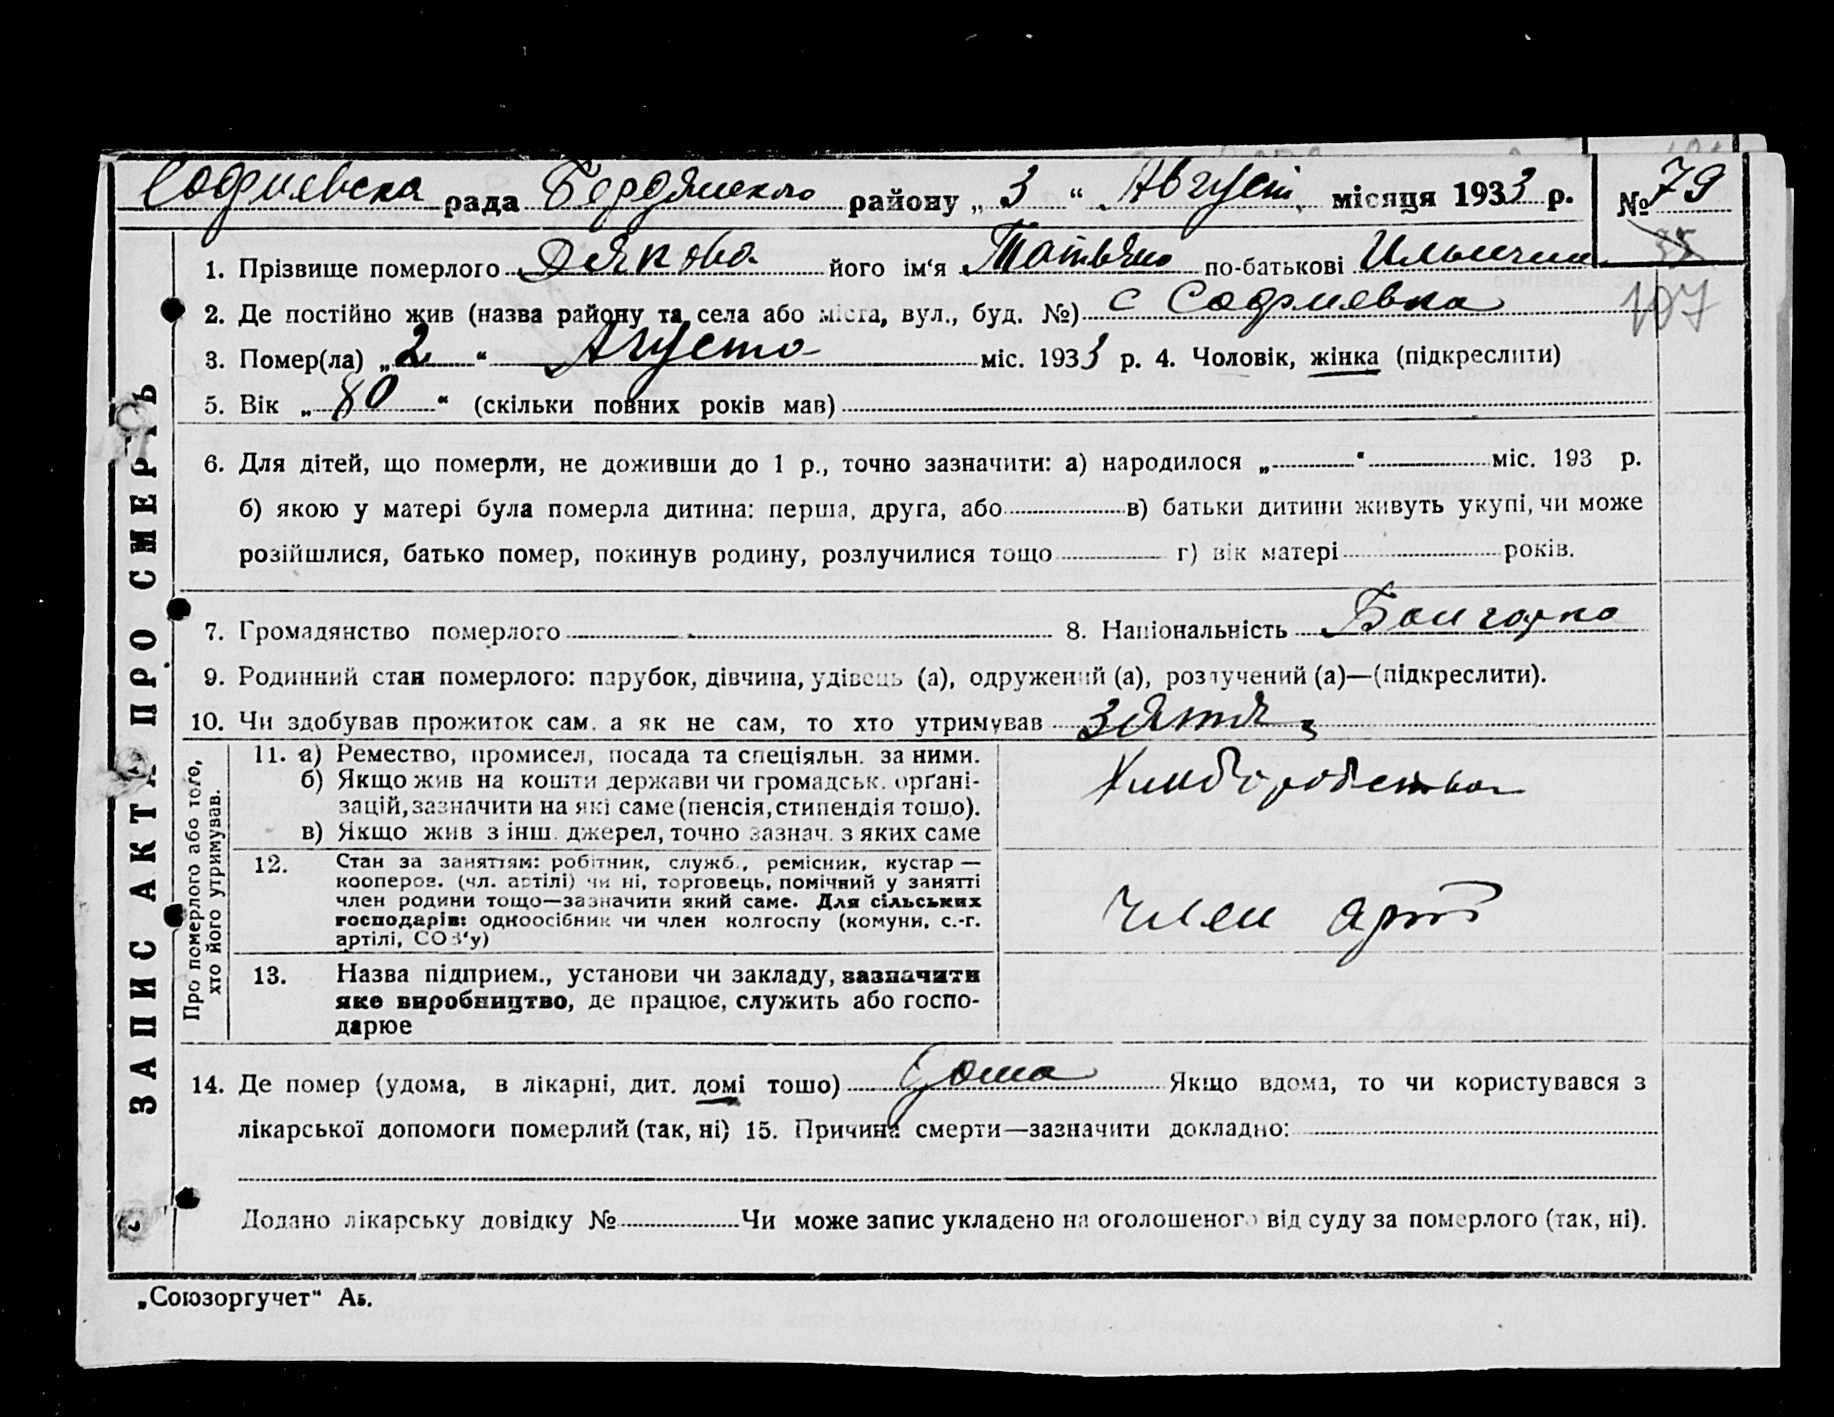 Софиевска рада Бердянского району „ 3 “ Август місяця 1933 р. № 79
35
1. Прізвище померлого Дякова його ім'я Татьяна по-батькові Ильични
2. Де постійно жив (назва району та села або міста, вул., буд. №) с Софиевка 107
3. Помер(ла) „ 2 “ Августа міс. 1933 р. 4. Чоловік, жінка (підкреслити)
5. Вік „ 80 “ (скільки повних років мав)
6. Для дітей, що померли, не доживши до 1 р., точно зазначити: а) народилося „ “ міс. 193 р.
б) якою у матері була померла дитина: перша, друга, або в) батьки дитини живуть укупі, чи може
розійшлися, батько помер, покинув родину, розлучилися тощо г) вік матері років.
7. Громадянство померлого 8. Національність Болгарка
9. Родинний стан померлого: парубок, дівчина, удівець (а), одружений (а), розлучений (а)—(підкреслити).
10. Чи здобував прожиток сам, а як не сам, то хто утримував зятя
11. а) Ремество, промисел, посада та спеціяльн. за ними.
б) Якщо жив на кошти держави чи громадськ. орґані-
зацій, зазначити на які саме (пенсія, стипендія тощо).
в) Якщо жив з інш. джерел, точно зазнач. з яких саме
Хлиборобство
12. Стан за заняттям: робітник, служб., ремісник, кустар —
кооперов. (чл. артілі) чи ні, торговець, помічний у занятті
член родини тощо—зазначити який саме. Для сільських
господарів: одноосібник чи член колгоспу (комуни, с.-г.
артілі, СОЗ'у)
член арт
13. Назва підприєм., установи чи закладу, зазначити
яке виробництво, де працює, служить або госпо-
дарює
14. Де помер (удома, в лікарні, дит. домі тощо) Дома Якщо вдома, то чи користувався з
лікарської допомоги померлий (так, ні) 15. Причина смерти—зазначити докладно:
Додано лікарську довідку № Чи може запис укладено на оголошеного від суду за померлого (так, ні).
„Союзоргучет“ Аь.
ЗАПИС АКТА ПРО СМЕРТЬ
Про померлого або того,
хто його утримував.